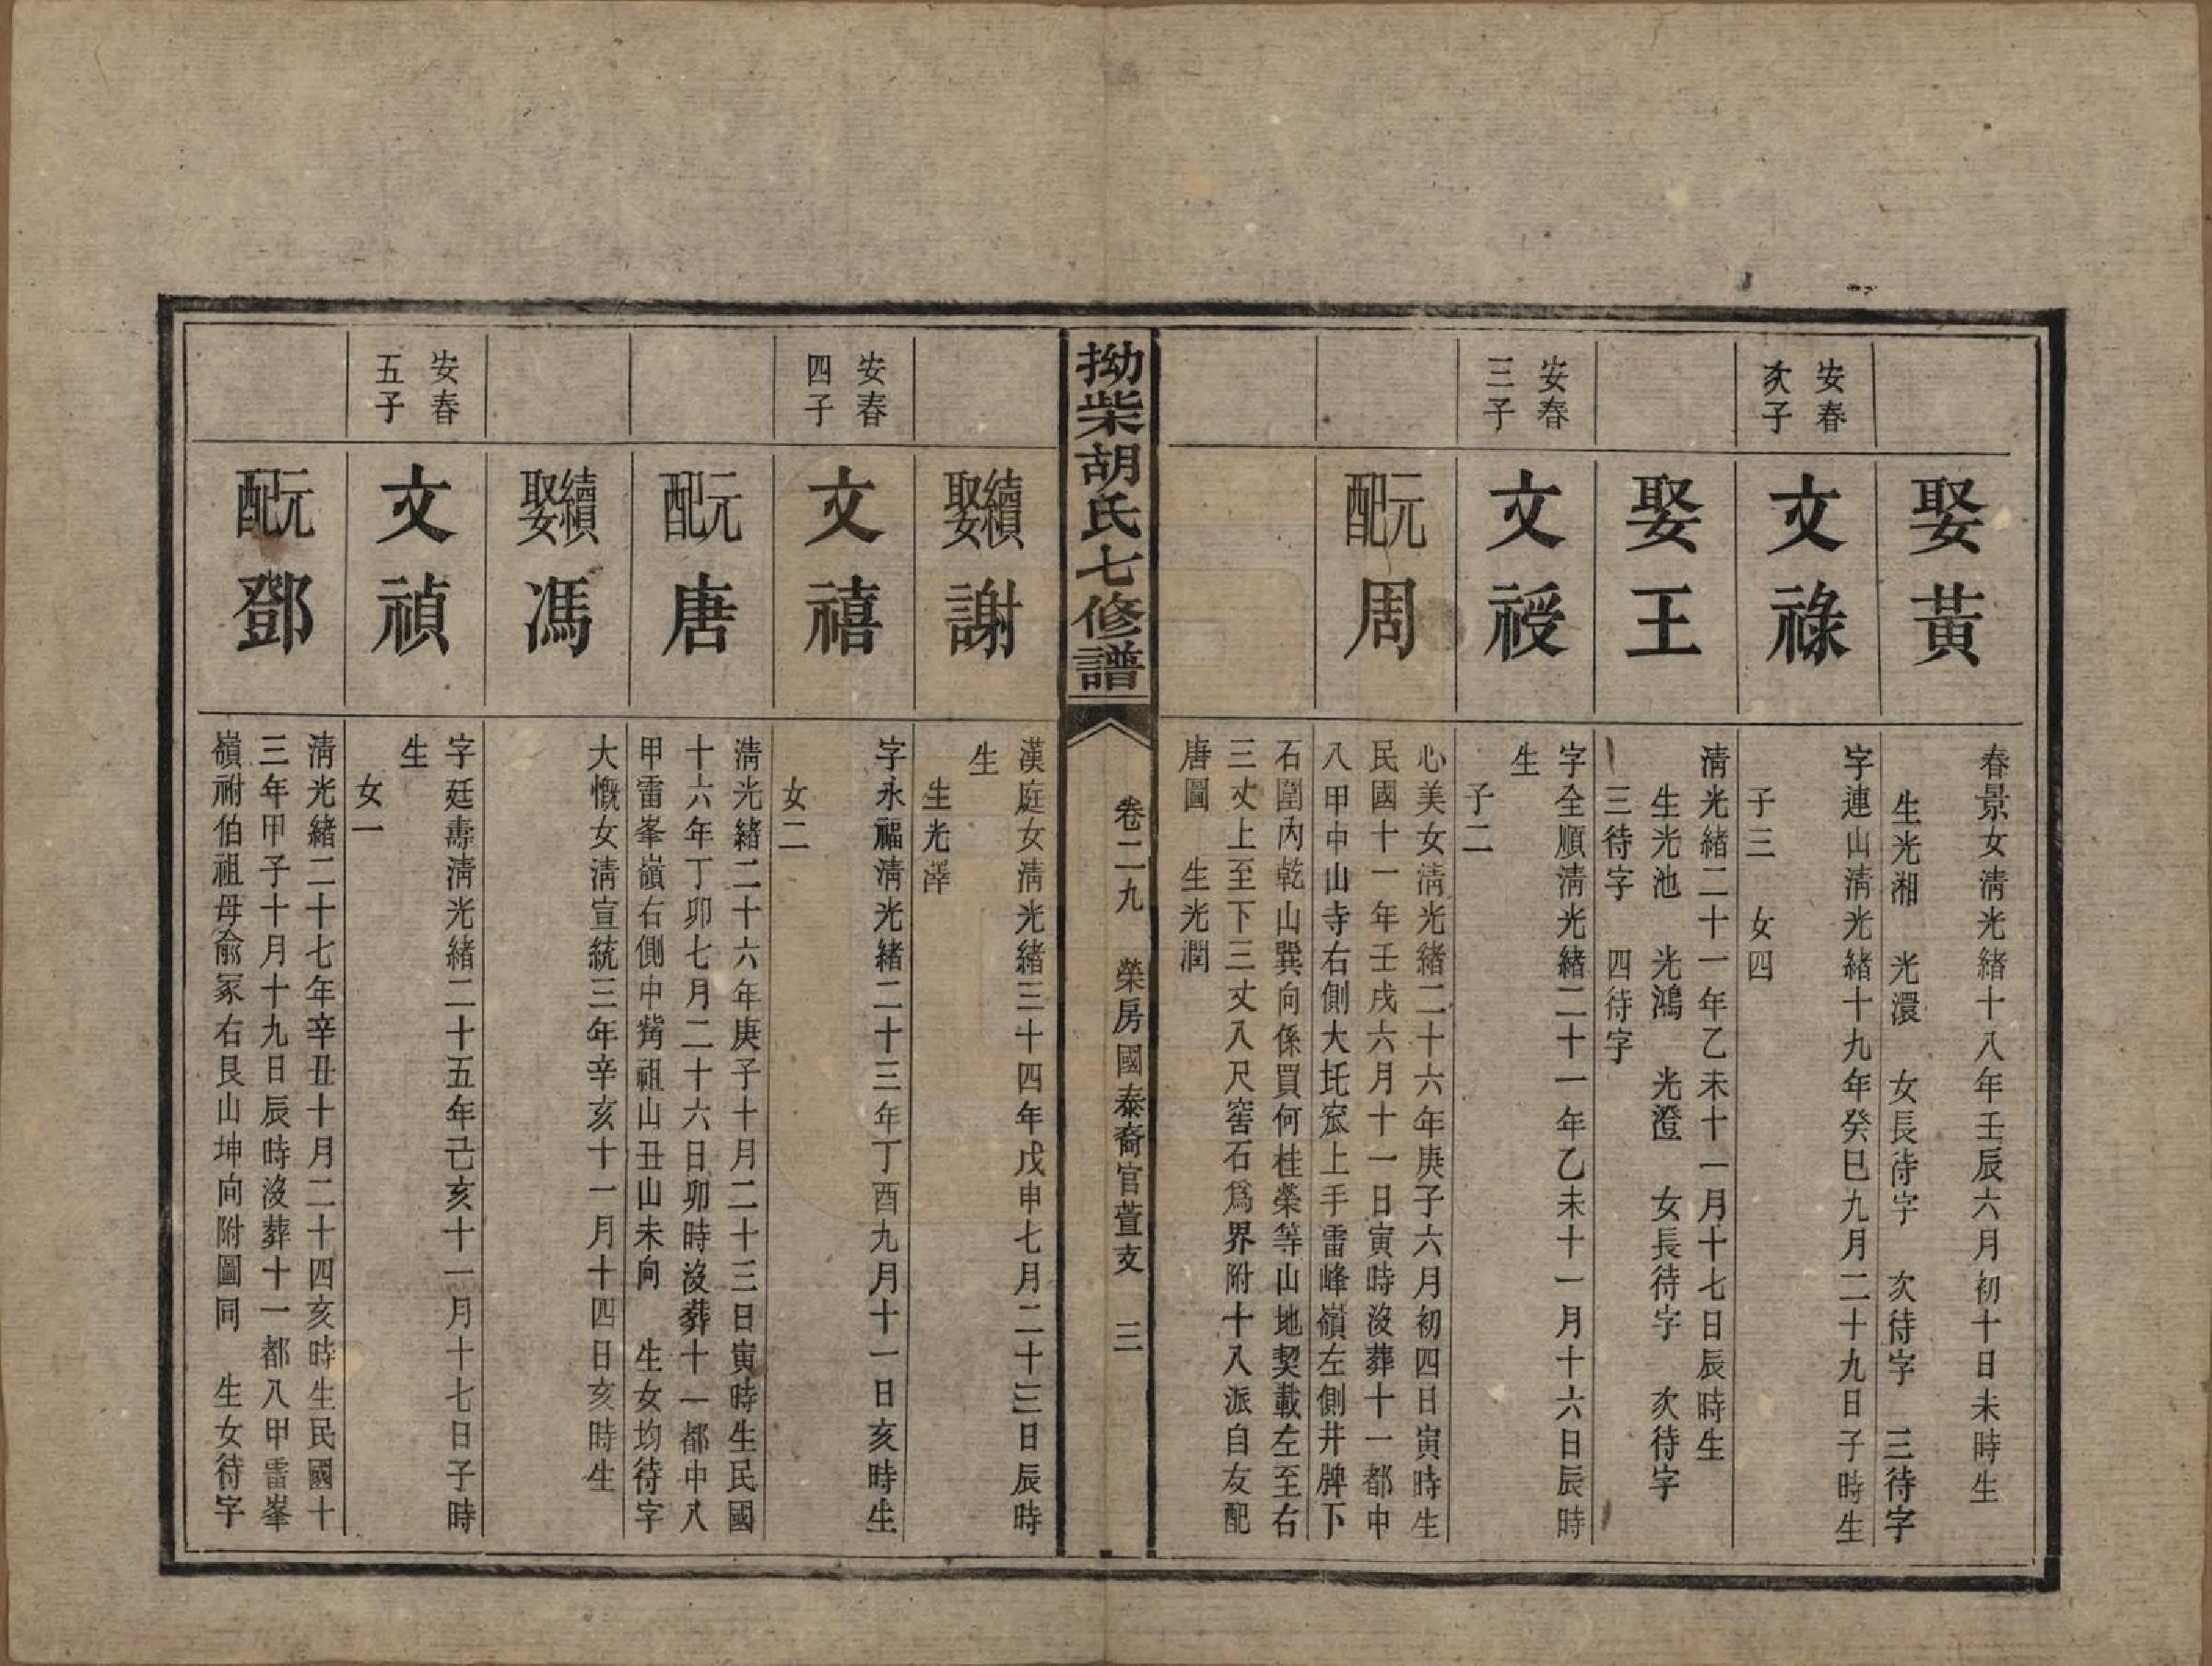 娶黃
春景女淸光緒十八年壬辰六月初十日未時生
生光湘　光澴　女長待字　次待字　三待字
安春
次子
文祿
字連山淸光緒十九年癸巳九月二十九日子時生
子三　女四
娶王
淸光緒二十一年乙未十一月十七日辰時生
生光池　光鴻　光澄　女長待字　次待字
三待字　四待字
安春
三子
文祿
字全順淸光緒二十一年乙未十一月十六日辰時
生
子二
元配
周
心美女淸光緒二十六年庚子六月初四日寅時生
民國十一年壬戌六月十一日寅時沒葬十一都中
八甲中山寺右側大圫窊上手雷峰嶺左側井牌下
石圍內乾山巽向係買何桂榮等山地契載左至右
三丈上至下三丈入尺窖石爲界附十入派自友配
唐圖　生光潤
拗柴胡氏七修譜
卷二九　榮房國泰裔官萱支　三
續娶
謝
漢庭女淸光緒三十四年戊申七月二十三日辰時
生
生光澤
安春
四子
文禧
字永福淸光緒二十三年丁酉九月十一日亥時生
女二
元配
唐
淸光緒二十六年庚子十月二十三日寅時生民國
十六年丁卯七月二十六日卯時沒葬十一都中八
甲雷峯嶺右側中嘴祖山丑山未向　生女均待字
續娶
馮
大慨女淸宣統三年辛亥十一月十四日亥時生
安春
五子
文禎
字廷壽淸光緒二十五年己亥十一月十七日子時
生
女一
元配
鄧
淸光緒二十七年辛丑十月二十四亥時生民國十
三年甲子十月十九日辰時沒葬十一都八甲雷峯
嶺祔伯祖母俞冢右艮山坤向附圖同　生女待字